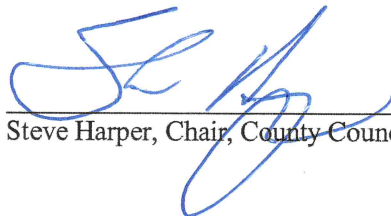 Steve Harper, Chair, County Counc